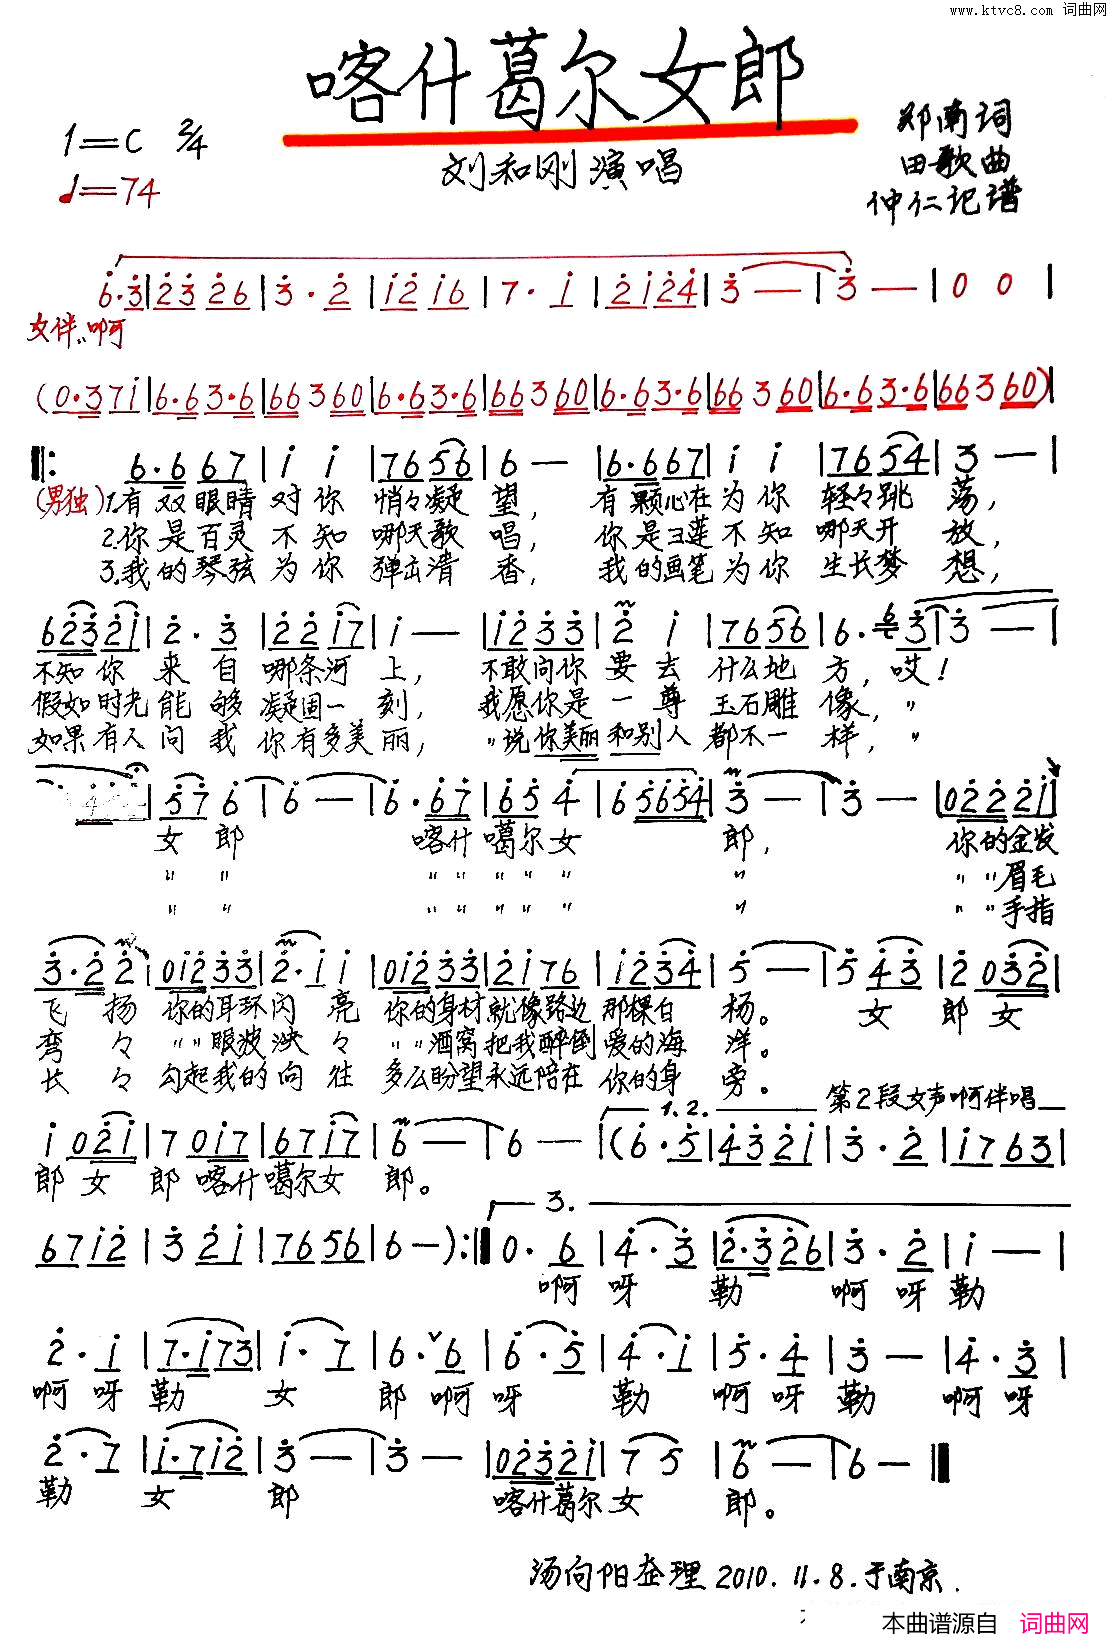 www.ktvc8.com 词曲网
喀什葛尔女郎
1=C 2/4
♩=74
刘和刚演唱
郑南词
田歌曲
仲仁记谱
6·3|2326|3·2|1216|7·1|2124|3—|3—|0 0|
女伴..啊
(0·371|6·63·6|66360|6·63·6|66360|6·63·6|66360|6·63·6|66360)|
‖: 6·667|1 1|7656|6—|6·667|1 1|7654|3—|
(男独)1.有双眼睛对你悄々凝望，有颗心在为你轻々跳荡，
2.你是百灵不知哪天歌唱，你是雪莲不知哪天开放，
3.我的琴弦为你弹击清香，我的画笔为你生长梦想，
62321|2·3|2217|1—|1233|2 1|7656|6·63|3—|
不知你来自哪条河上，不敢问你要去什么地方，哎！
假如时光能够凝固一刻，我愿你是一尊玉石雕像，〃
如果有人问我你有多美丽，〃说你美丽和别人都不一样，〃
4|57 6|6—|6·67|65 4|65654|3—|3—|02221|
女郎 喀什噶尔女郎，你的金发
〃 〃 〃 〃 〃 〃 〃 〃 〃眉毛
〃 〃 〃 〃 〃 〃 〃 〃 〃手指
3·2 2|01233|2·1 1|01233|2176|1234|5—|5 43|2 032|
飞扬 你的耳环闪亮 你的身材就像路边那棵白杨。女郎女
弯々 〃〃眼波泱々 〃〃酒窝把我醉倒爱的海洋。
长々 勾起我的向往 多么盼望永远陪在你的身旁。
1.2. 第2段女声啊伴唱
1 021|7 017|6717|6—|6—|(6·5|4321|3·2|1763|
郎女郎喀什噶尔女郎。
3.
6712|3 21|7656|6—):‖0·6|4·3|2·326|3·2|1—|
啊呀勒啊呀勒
2·1|7·173|1·7|6·6|6·5|4·1|5·4|3—|4·3|
啊呀勒女郎啊呀勒啊呀勒啊呀
2·7|1·712|3—|3—|02321|7 5|6—|6—‖
勒女郎 喀什葛尔女郎。
汤向阳整理 2010.11.8.于南京.
本曲谱源自 词曲网